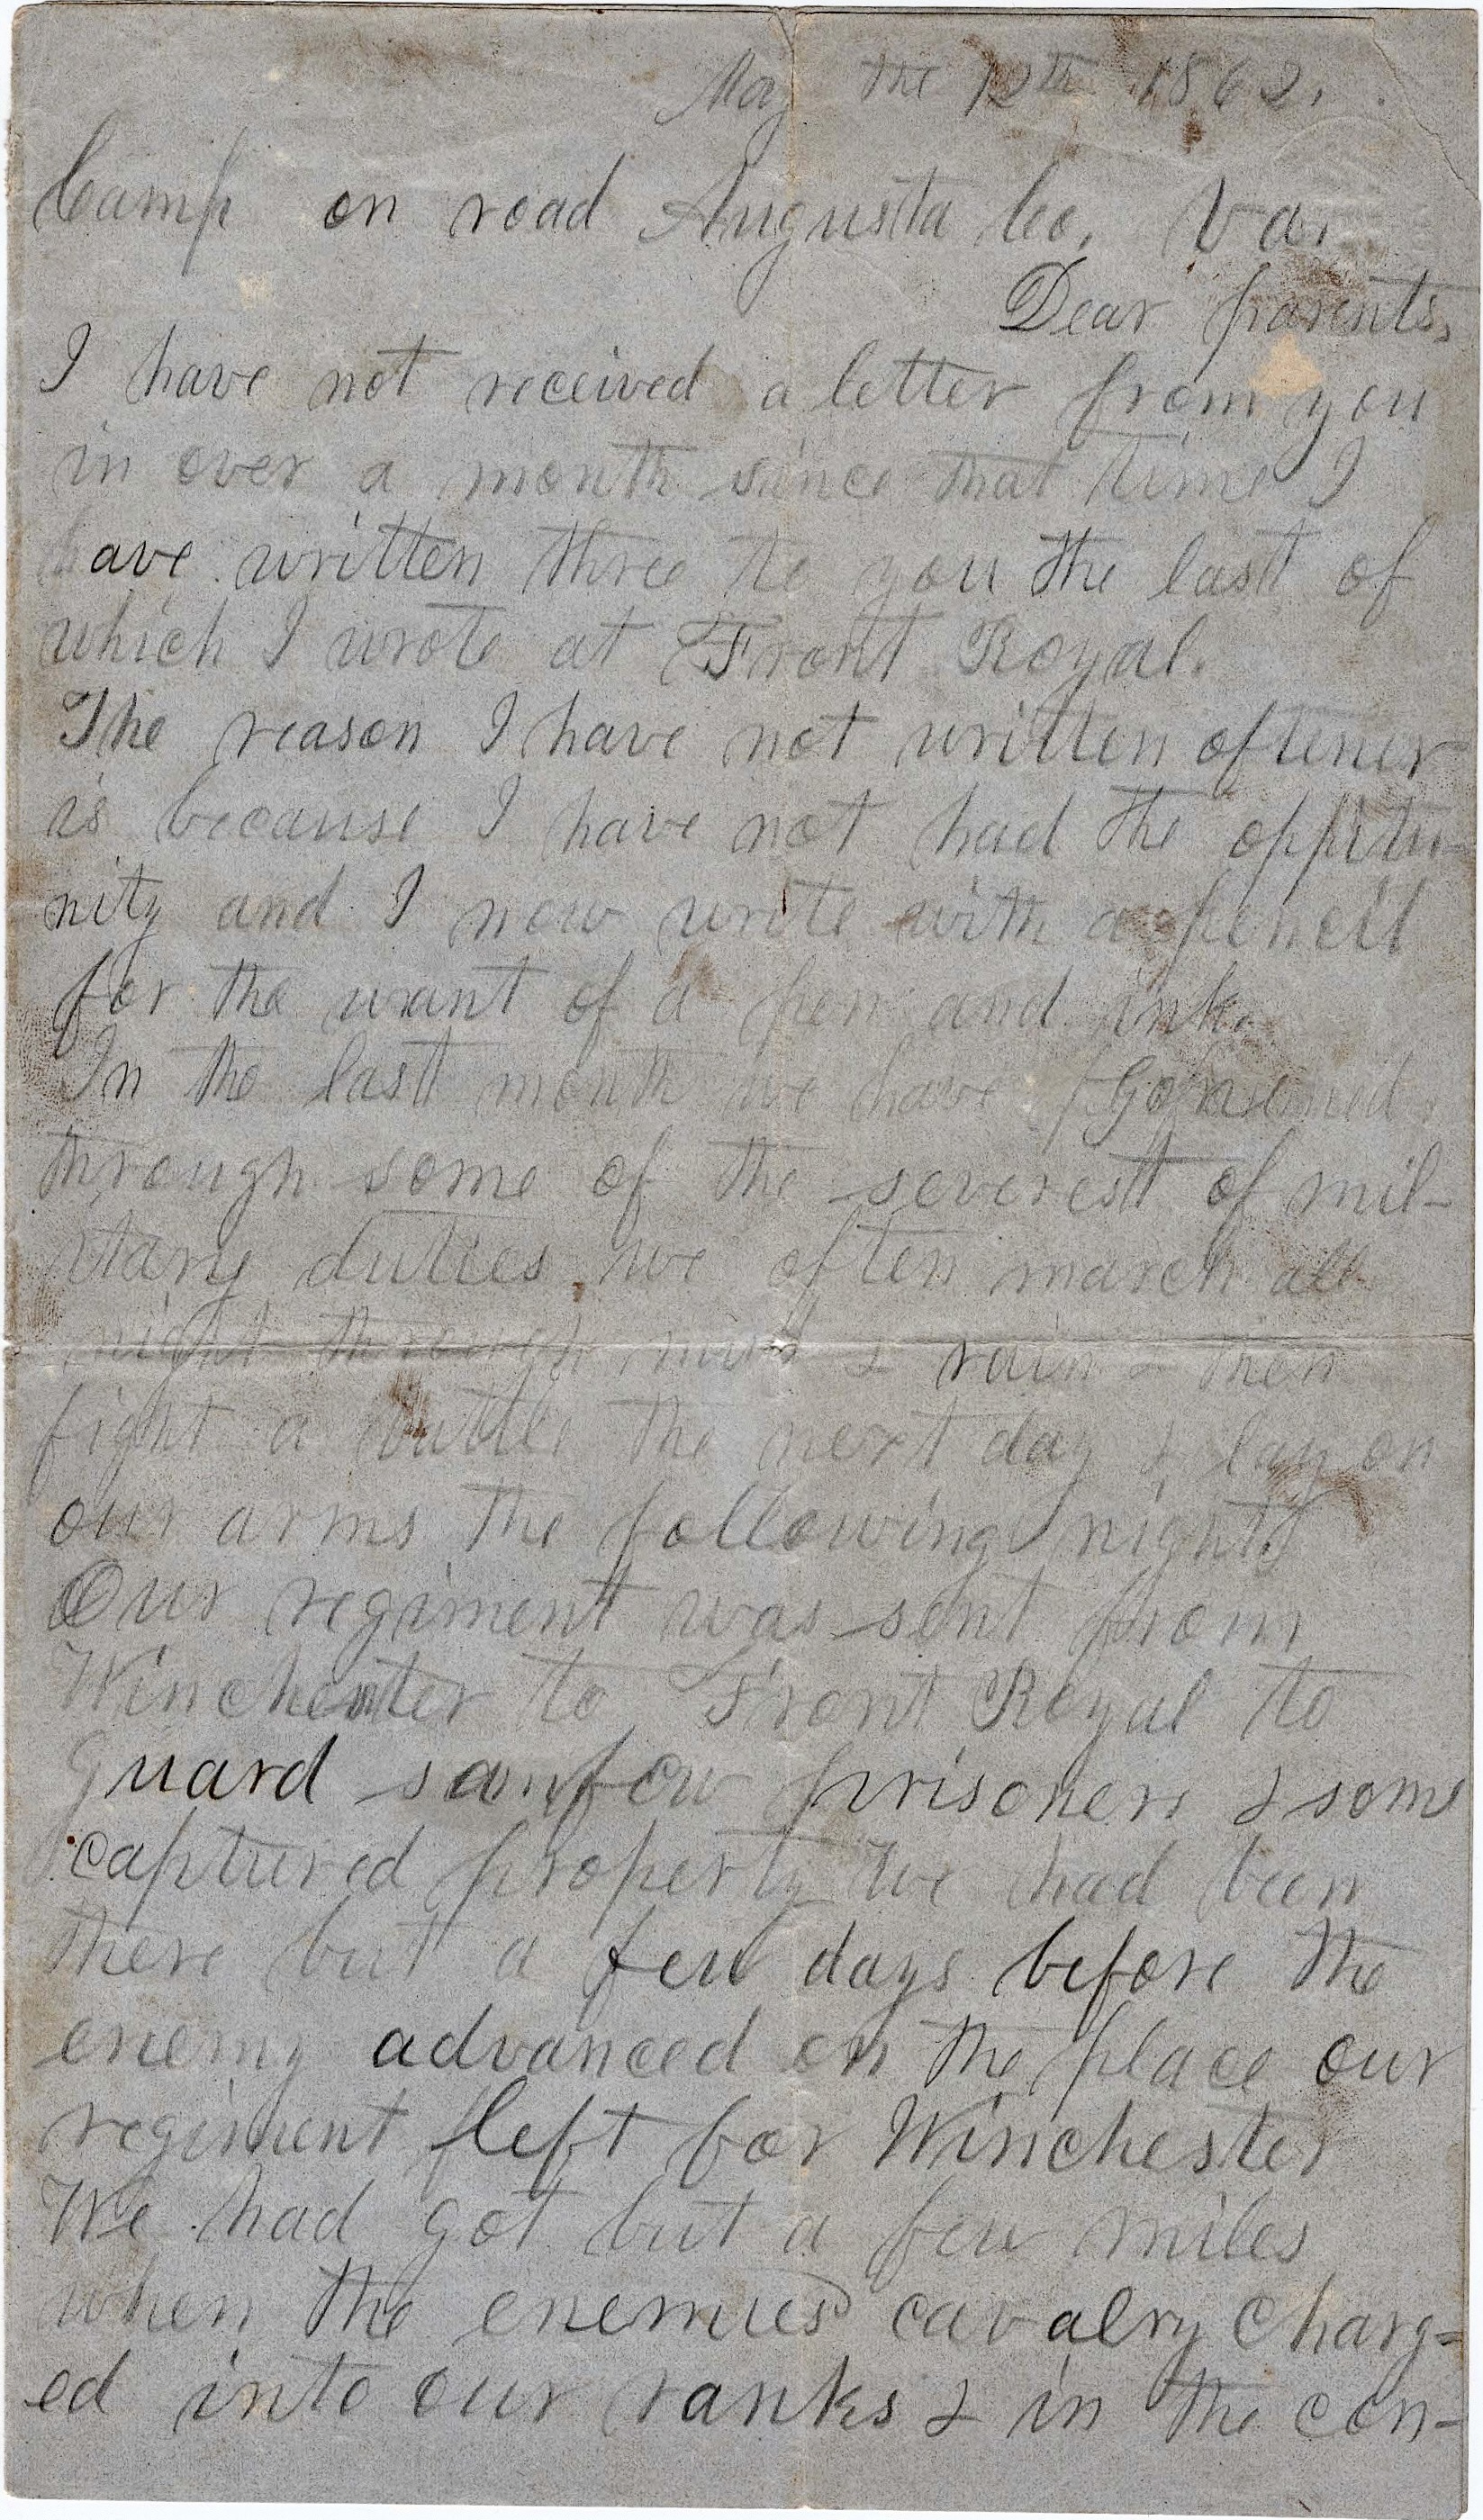 May the 12th 1862.
Camp on road Augusta Co. Va.
Dear parents,
I have not received a letter from you
in over a month since that time I
have written three to you the last of
which I wrote at Front Royal.
The reason I have not written oftener
is because I have not had the oppitu-
nity and I now write with a pencil
for the want of a pen and ink.
In the last month we have
through some of the severest of mil-
itary duties we often march all
night through mud & rain & then
fight a battle the next day & lay on
our arms the following night
Our regiment was sent from
Winchester to Front Royal to
guard few prisoners & some
captured property We had been
there but a few days before the
enemy advanced on the place our
regiment left for Winchester
We had got but a few miles
when the enemies cavalry charg=
ed into our ranks & in the con-